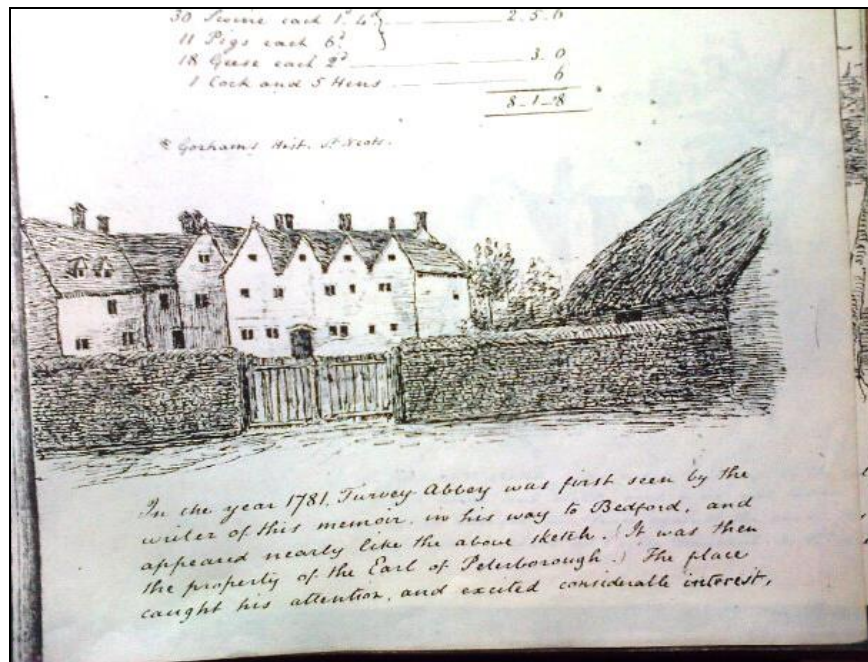 30 Swine each 1s. 4d. 2. 5. 0
11 Pigs each 6d.
18 Geese each 2d 3. 0
1 Cock and 5 Hens 6
8-1-8
* Gorham's Hist. St Neots.
In the year 1781. Turvey Abbey was first seen by the
writer of this memoir, in his way to Bedford, and
appeared nearly like the above sketch. (It was then
the property of the Earl of Peterborough.) The place
caught his attention, and excited considerable interest,